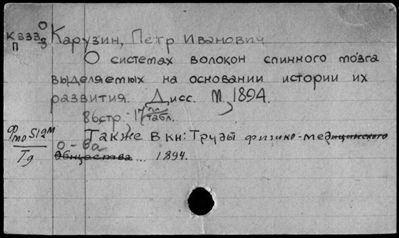 К 333 0/3
П
Карузин, Петр Иванович
О системах волокон спинного мозга
выделяемых на основании истории их
развития. Дисс. М., 1894.
86 стр.; 17 пл. табл.
Фто 512м
Тд
Также в кн: Труды физико-медицинского
о-ва
Общества ... 1894.